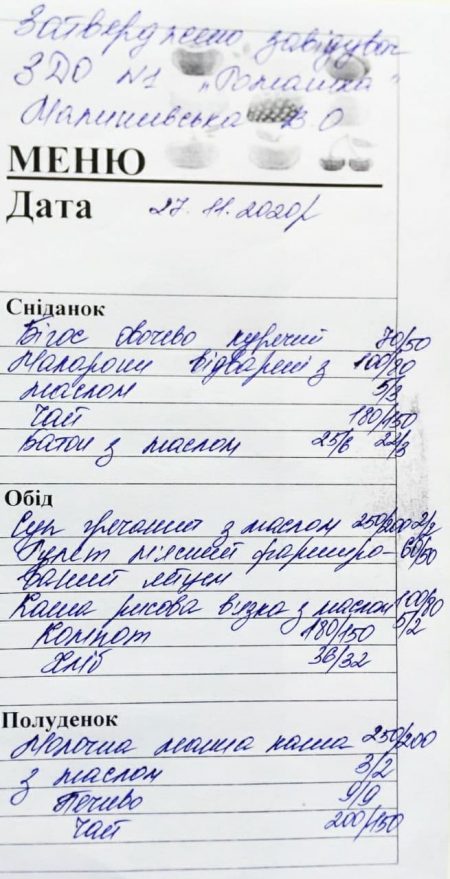 Затверджено завідувач
ЗДО №1 „Ромашка"
Малишивська В О
МЕНЮ
Дата 27.11.2020р
Сніданок
Бігос овочево курячий 70/50
Макарони відварені з 100/80
маслом 5/3
Чай 180/150
Батон з маслом 25/6 22/3
Обід
Суп гречаний з маслом 250/200 2/2
Рулет мясний фарширо- 60/50
ваний яйцем
Каша рисова вязка з маслом 100/80
5/2
Компот 180/150
Хліб 36/32
Полуденок
Молочна манна каша 250/200
з маслом 3/2
Печиво 9/9
Чай 200/150